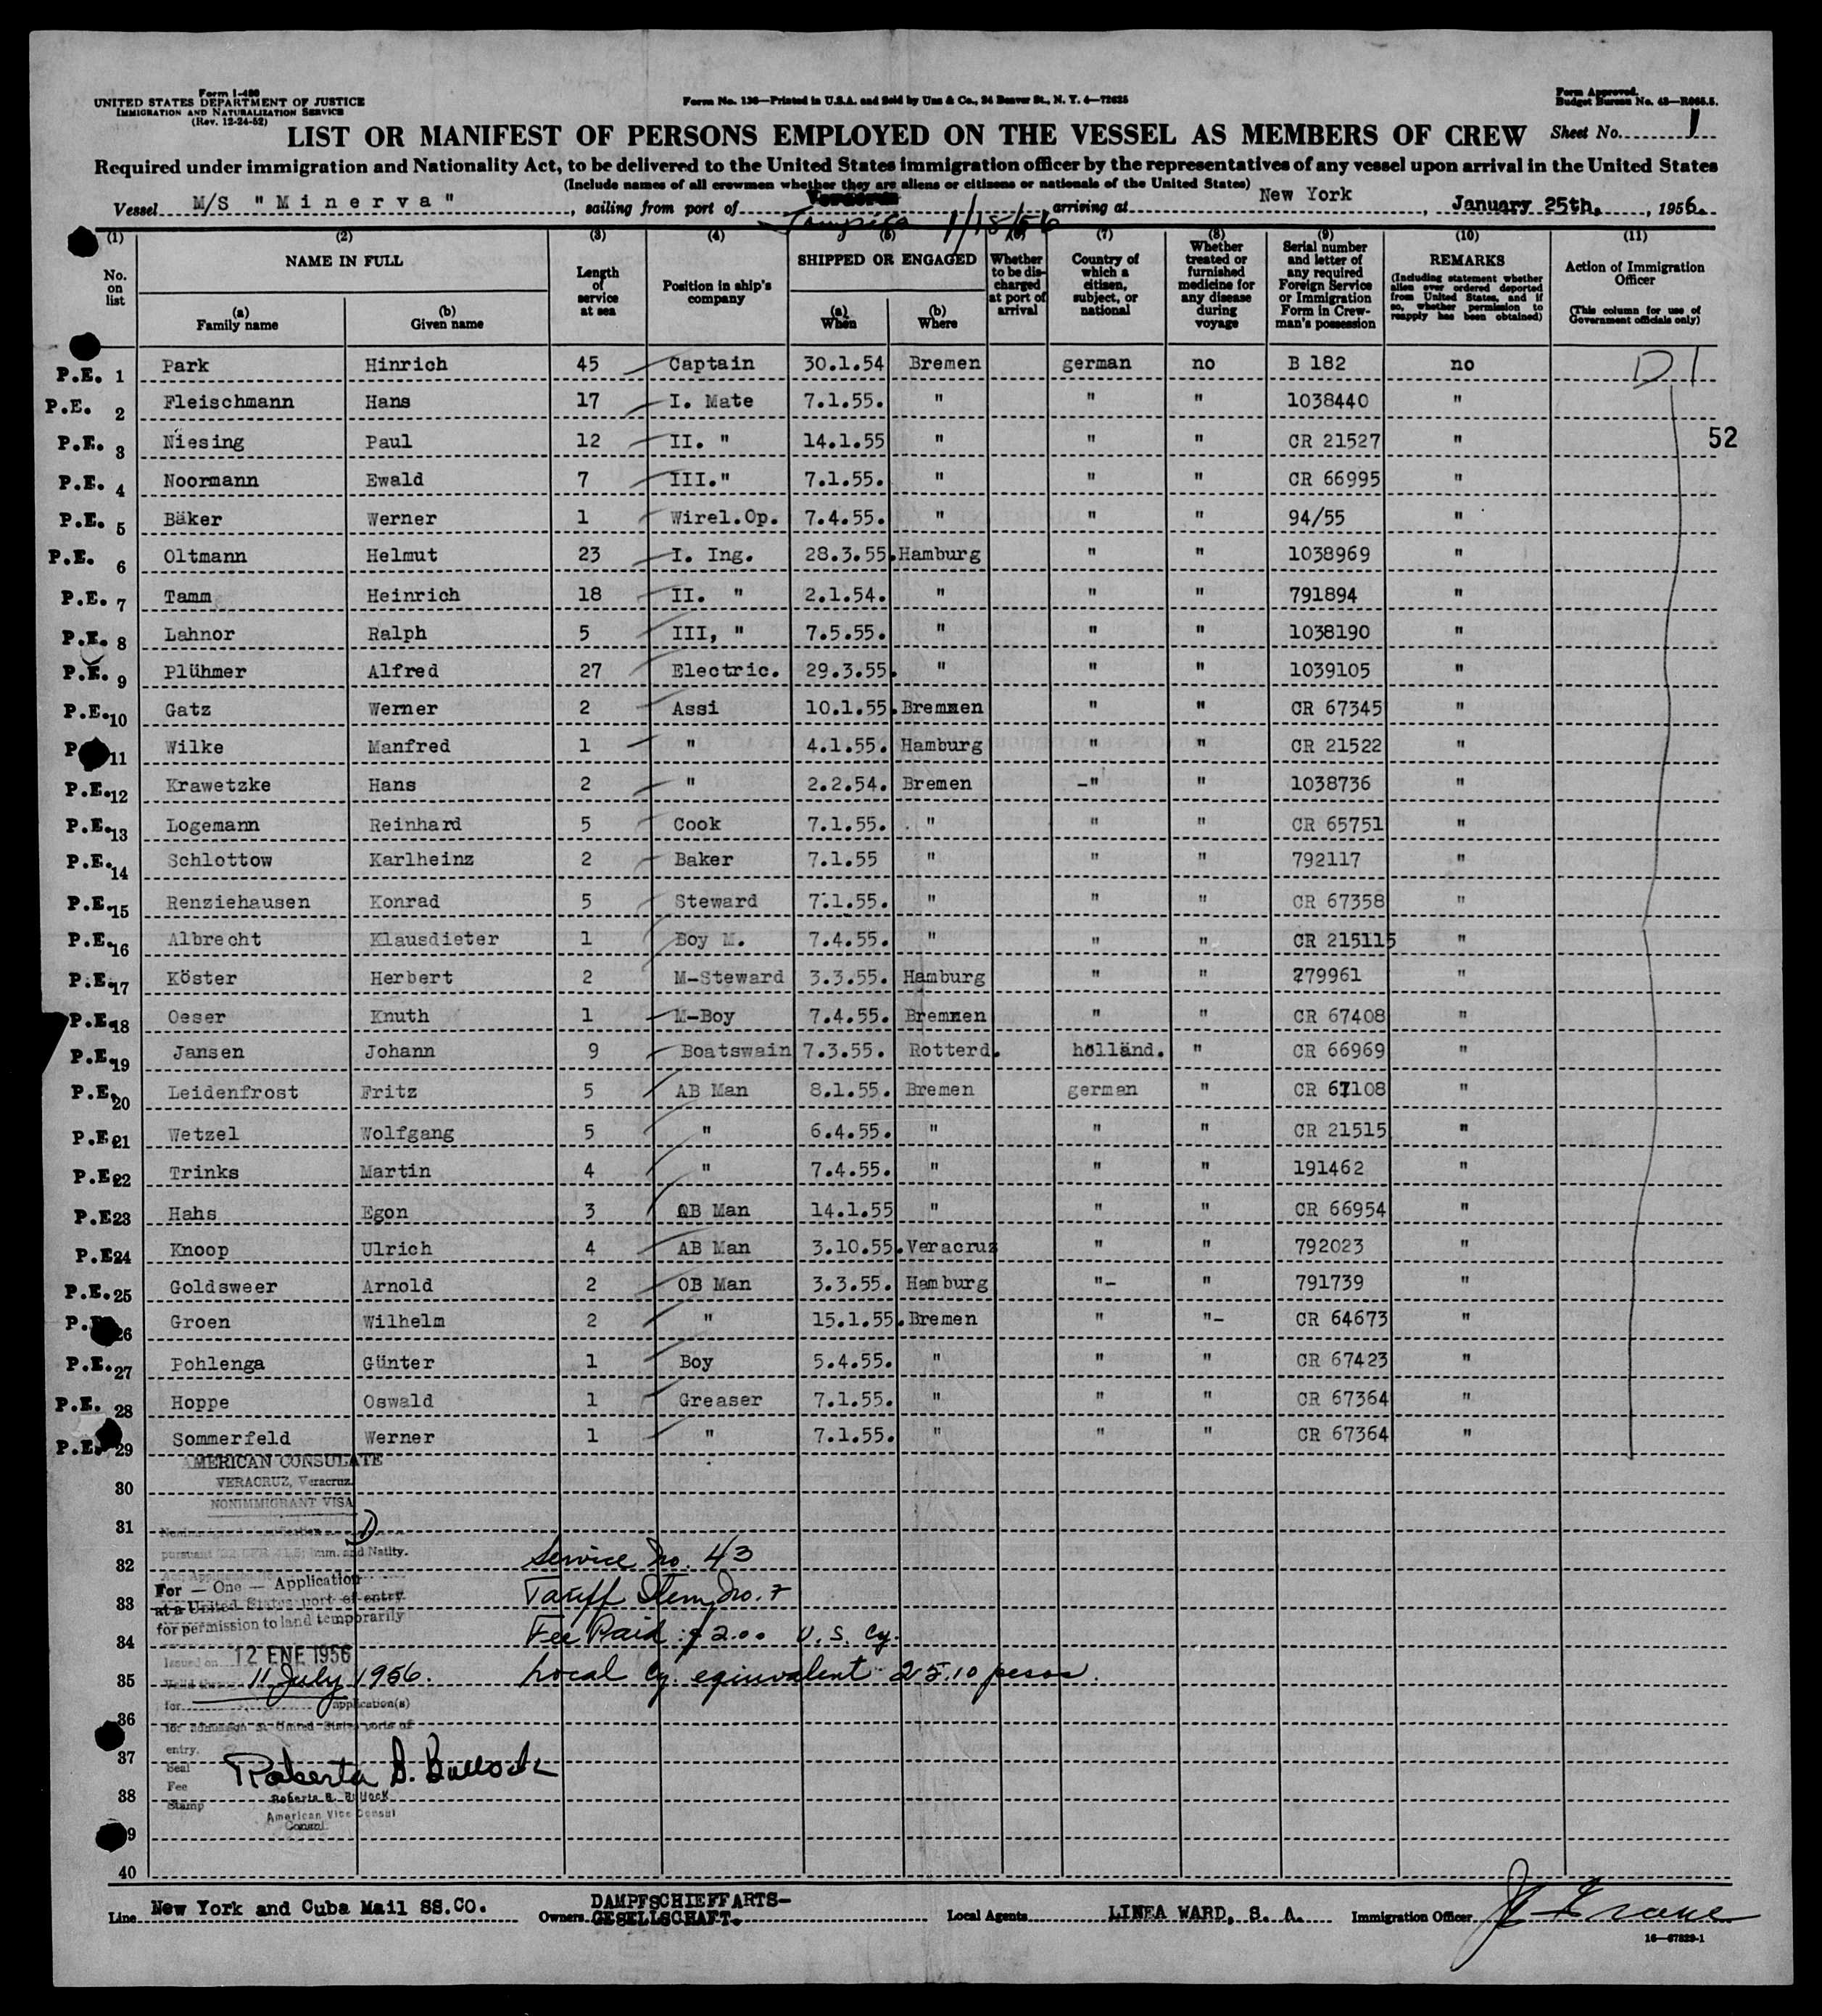 Form I-480
UNITED STATES DEPARTMENT OF JUSTICE
IMMIGRATION AND NATURALIZATION SERVICE
(Rev. 12-24-52)
Form No. 136—Printed in U.S.A. and Sold by Unz & Co., 24 Beaver St., N. Y. 4—72625
Form Approved.
Budget Bureau No. 43—R065.5.
LIST OR MANIFEST OF PERSONS EMPLOYED ON THE VESSEL AS MEMBERS OF CREW
Sheet No. 1
Required under immigration and Nationality Act, to be delivered to the United States immigration officer by the representatives of any vessel upon arrival in the United States
(Include names of all crewmen whether they are aliens or citizens or nationals of the United States)
Vessel M/S "Minerva", sailing from port of Tampico 1/15/56 arriving at New York, January 25th, 1956.
(1) (2) (3) (4) (5) (6) (7) (8) (9) (10) (11)
No. on list
NAME IN FULL
(a) Family name
(b) Given name
Length of service at sea
Position in ship's company
SHIPPED OR ENGAGED
(a) When
(b) Where
Whether to be discharged at port of arrival
Country of which a citizen, subject, or national
Whether treated or furnished medicine for any disease during voyage
Serial number and letter of any required Foreign Service or Immigration Form in Crewman's possession
REMARKS
(Including statement whether alien ever ordered deported from United States, and if so, whether permission to reapply has been obtained)
Action of Immigration Officer
(This column for use of Government officials only)
P.E. 1 Park Hinrich 45 Captain 30.1.54 Bremen german no B 182 no D 1
P.E. 2 Fleischmann Hans 17 I. Mate 7.1.55. " " " 1038440 "
P.E. 3 Niesing Paul 12 II. " 14.1.55 " " " CR 21527 " 52
P.E. 4 Noormann Ewald 7 III." 7.1.55. " " " CR 66995 "
P.E. 5 Bäker Werner 1 Wirel.Op. 7.4.55. " " " 94/55 "
P.E. 6 Oltmann Helmut 23 I. Ing. 28.3.55. Hamburg " " 1038969 "
P.E. 7 Tamm Heinrich 18 II. " 2.1.54. " " " 791894 "
P.E. 8 Lahnor Ralph 5 III, " 7.5.55. " " " 1038190 "
P.E. 9 Plühmer Alfred 27 Electric. 29.3.55. " " " 1039105 "
P.E. 10 Gatz Werner 2 Assi 10.1.55. Bremmen " " CR 67345 "
P 11 Wilke Manfred 1 " 4.1.55. Hamburg " " CR 21522 "
P.E. 12 Krawetzke Hans 2 " 2.2.54. Bremen -" " 1038736 "
P.E. 13 Logemann Reinhard 5 Cook 7.1.55. " " " CR 65751 "
P.E. 14 Schlottow Karlheinz 2 Baker 7.1.55 " " " 792117 "
P.E. 15 Renziehausen Konrad 5 Steward 7.1.55. " " " CR 67358 "
P.E. 16 Albrecht Klausdieter 1 Boy M. 7.4.55. " " " CR 215115 "
P.E. 17 Köster Herbert 2 M-Steward 3.3.55. Hamburg " " 279961 "
P.E. 18 Oeser Knuth 1 M-Boy 7.4.55. Bremmen " " CR 67408 "
P.E. 19 Jansen Johann 9 Boatswain 7.3.55. Rotterd. holländ. " CR 66969 "
P.E. 20 Leidenfrost Fritz 5 AB Man 8.1.55. Bremen german " CR 67108 "
P.E. 21 Wetzel Wolfgang 5 " 6.4.55. " " " CR 21515 "
P.E. 22 Trinks Martin 4 " 7.4.55. " " " 191462 "
P.E. 23 Hahs Egon 3 OB Man 14.1.55 " " " CR 66954 "
P.E. 24 Knoop Ulrich 4 AB Man 3.10.55. Veracruz " " 792023 "
P.E. 25 Goldsweer Arnold 2 OB Man 3.3.55. Hamburg "- " 791739 "
P. 26 Groen Wilhelm 2 " 15.1.55. Bremen " "- CR 64673 "
P.E. 27 Pohlenga Günter 1 Boy 5.4.55. " " " CR 67423 "
P.E. 28 Hoppe Oswald 1 Greaser 7.1.55. " " " CR 67364 "
P.E. 29 Sommerfeld Werner 1 " 7.1.55. " " " CR 67364 "
AMERICAN CONSULATE
VERACRUZ, Veracruz
30
NONIMMIGRANT VISA
31 D
pursuant Imm. and Natlty.
32 Service No. 43
For — One — Application
Tariff Item No. 7
33 at a United States port of entry
for permission to land temporarily
34 Fee Paid: $2.00 U. S. Cy.
Issued on 12 ENE 1956
35 11 July 1956. Local Cy. equivalent 25.10 pesos.
for application(s)
36 for admission at United States ports of
entry.
37
Seal Roberta B. Bullock
Fee
38 Roberta B. Bullock
Stamp American Vice Consul
Consul
39
40
Line New York and Cuba Mail SS.CO. Owners DAMPFSCHIEFFARTS-GESELLSCHAFT. Local Agents LINEA WARD, S. A. Immigration Officer
16—67829-1